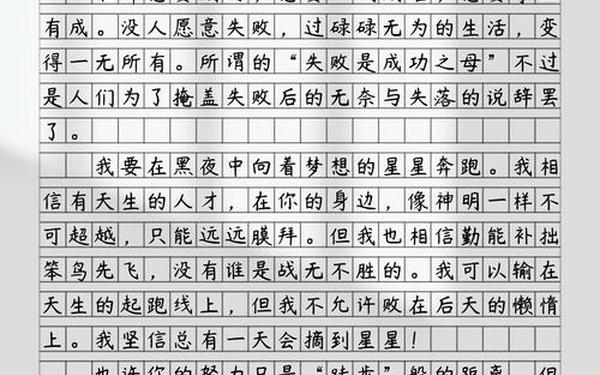 有成。没人愿意失败，过碌碌无为的生活，变
得一无所有。所谓的“失败是成功之母”不过
是人们为了掩盖失败后的无奈与失落的说辞罢
了。
我要在黑夜中向着梦想的星星奔跑。我相
信有天生的人才，在你的身边，像神明一样不
可超越，只能远远膜拜。但我也相信勤能补拙
笨鸟先飞，没有谁是战无不胜的。我可以输在
天生的起跑线上，但我不允许败在后天的懒惰
上。我坚信总有一天会摘到星星！
也许你的努力只是“跬步”般的距离，但